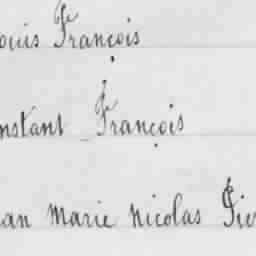 ouis François
nstant François
an Marie Nicolas